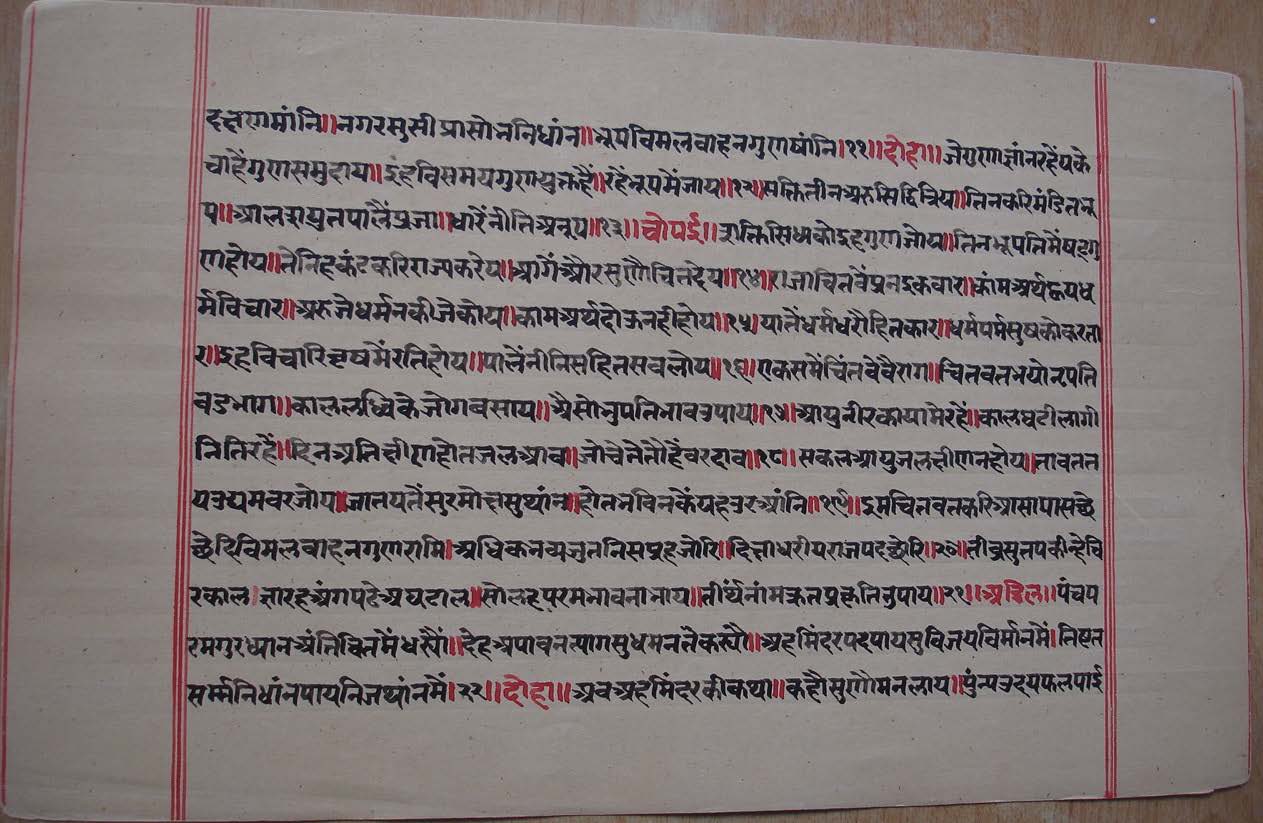 दक्षणमांनि॥नगरसुसीप्रासोननिधांन॥भूपविमलवाहनगुणषांनि।११॥दोहा॥जेगुणज्ञांनरहेंपके
चाहैंगुणसमुदाय॥इहविसमयगुणयुक्तहैं॥रहेंनृपमेंजाय॥१२॥सक्तितीनअरुसिद्धित्रिया॥तिनकरिमंडितभू
प॥आलदायुतपालैंप्रजा॥धारैंनीतिअनूप॥१३॥चौपई॥शक्तिसिधकोइहगुणजोय॥तिनभूपतिमेंषट्गु
णहोय॥तेनिहकंटकरिराज्यकरेय॥आगेंऔरसुणौचितदेय॥१४॥राजाचितवेंपुनइकवार॥कांमअर्थद्वयध
र्मविचार॥अरुजेधर्मनकीजेकोय॥कामअर्थदोऊनहीहोय॥१५॥यातेंधर्मधरौहितकार॥धर्मपर्मसुषकोकरता
र॥इहविचारिवृषमेंरतिहोय॥पालेंनीतिसहितसवलोय॥१६॥एकसमेंचिंतवेवैराग॥चितवतभयोनृपति
वडभाग॥काललब्धिकेजोगवसाय॥अैसोनुपतिभावउपाय॥१७॥आयुनीरकायामेरहें॥कालघटीलागी
नितिरहैं॥दिनप्रतिक्षीणहोतजलआव॥जोचेतेतौहैंवरदाव॥१८॥सकलआयुजलक्षीणनहोय॥तावतत
पउद्यमवरजोय॥जातपतैंसुरमोक्षसुथांन॥होतभविनकेंयहउरआंनि॥१९॥इमचितवतकरिआसापासच्छे
च्छेदिविमलवाहनगुणरासि॥अधिकनव्यजुतनिसप्रहजोरि॥दिक्षाधरीपराजपदछोरि॥२०॥तीव्रसुतपकीन्हेचि
रकाल॥ग्यारहअंगपढेअघटाल॥सोलहपरमभावनाभाय॥तीर्थनांमऊतप्रकृतिउपाय॥२१॥अडिल॥पंचप
रमगुरध्यानअंतिचितमेंधस्यौं॥देहअपावनत्यागसुधमनतेकस्यौ॥अहमिंदरपदपायसुविजयविमांनमें॥तिष्टत
सर्मनिधांनपायनिजथांनमें।२२॥दोहा॥अवअहमिंदरकीकथा॥कहौंसुणौमनलाय॥पुंन्यउदयफलपाई